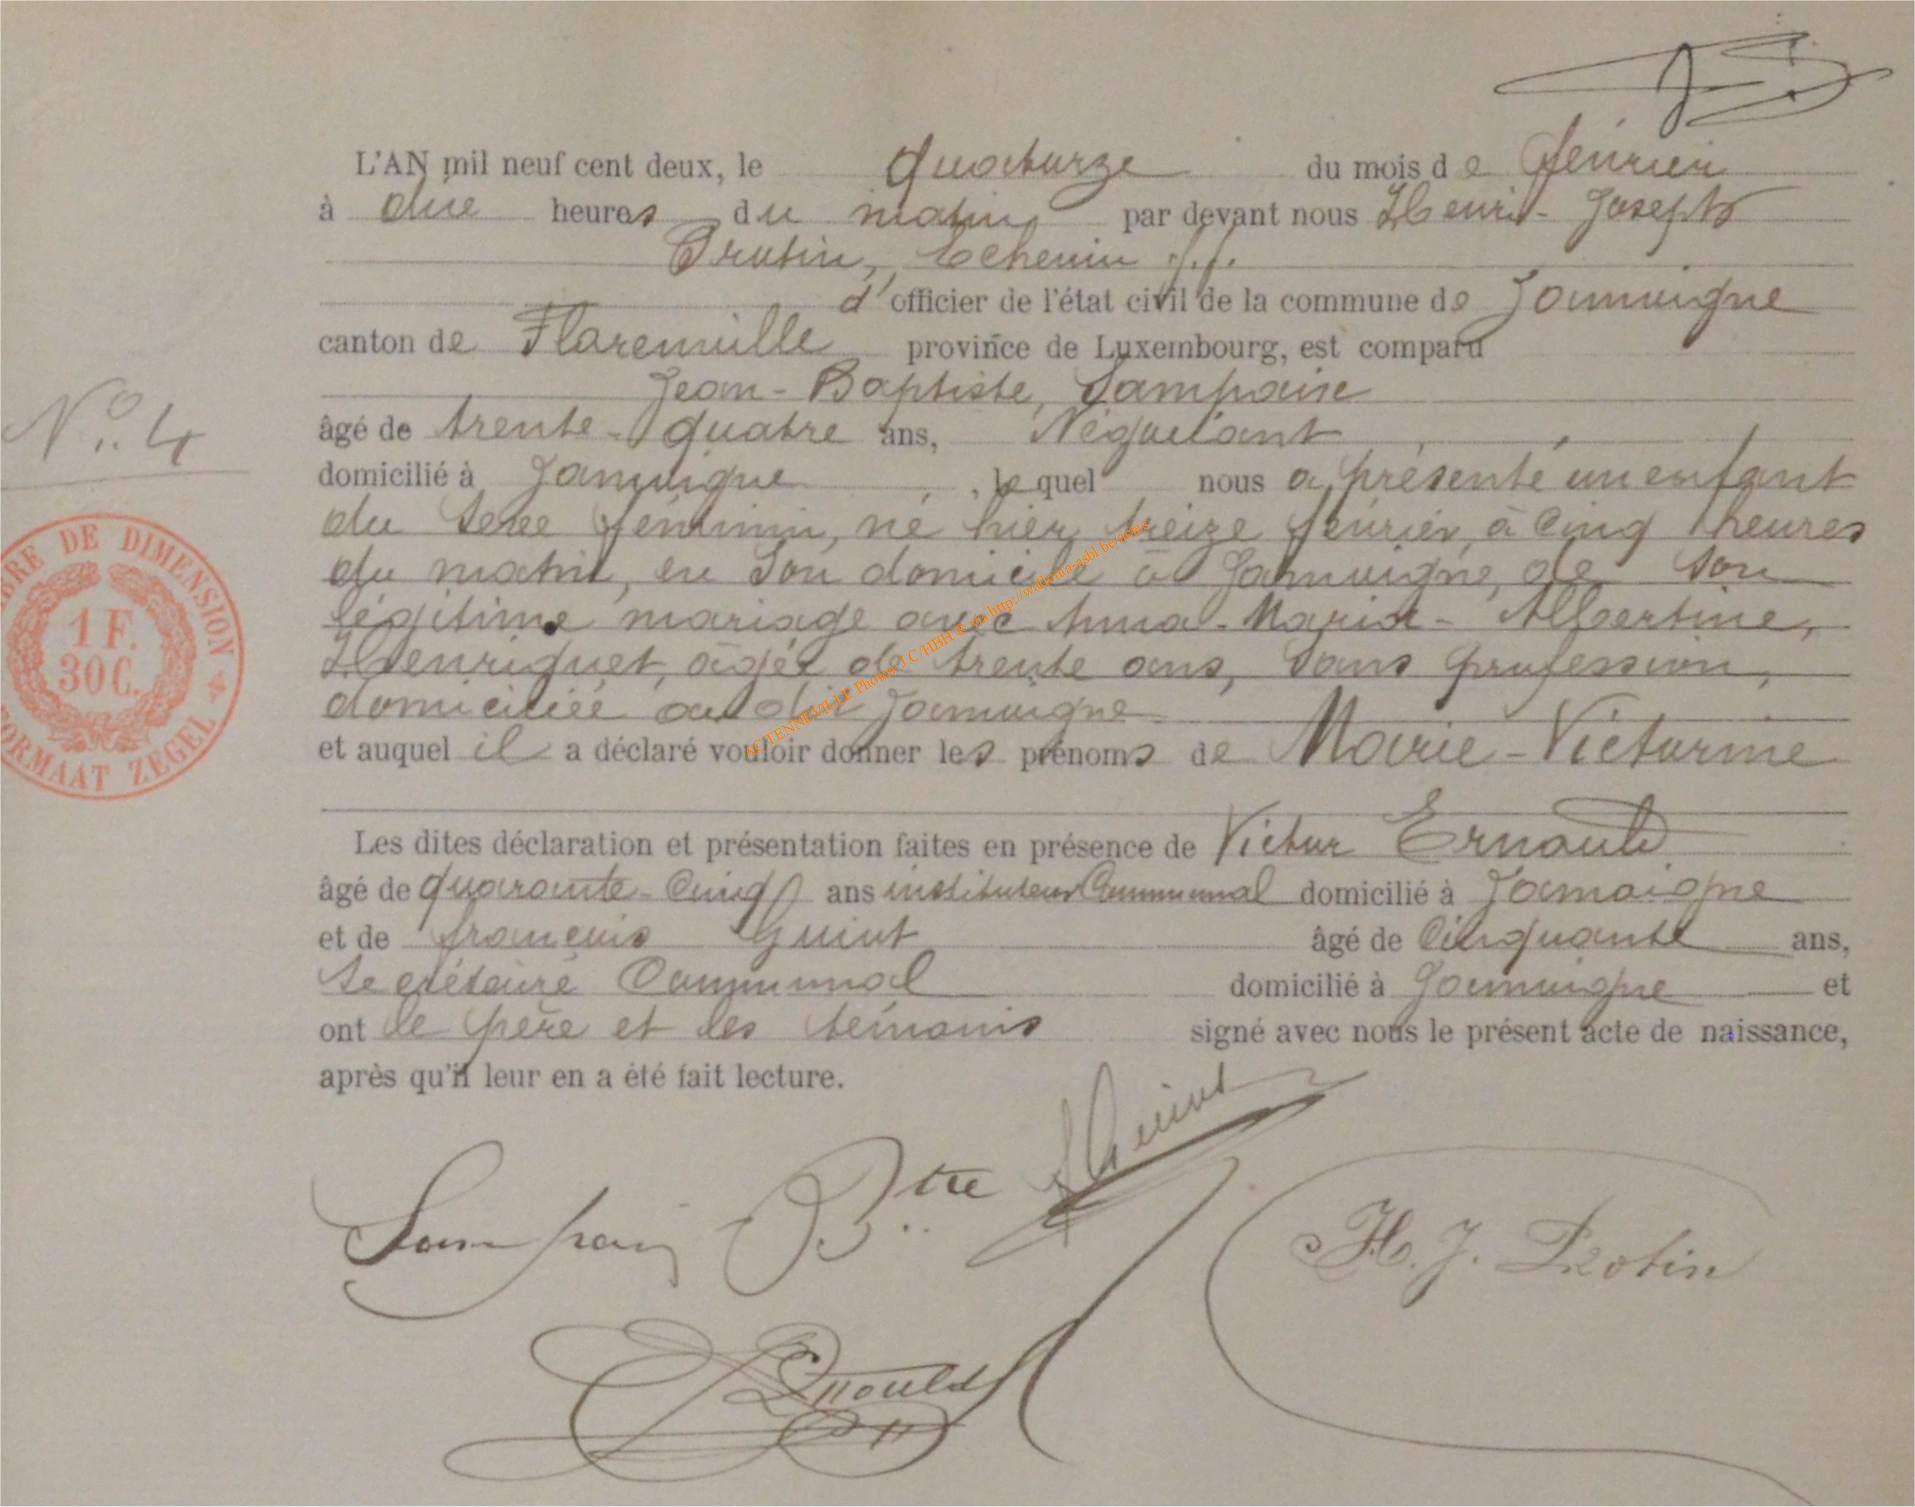 L'AN mil neuf cent deux, le quatorze du mois de février
à dix heures du matin par devant nous Henri-Joseph
Protin, Echevin ff.
d'officier de l'état civil de la commune de Jamoigne
canton de Florenville province de Luxembourg, est comparu
Jean-Baptiste, Lampain
N° 4
âgé de trente-quatre ans, Négociant
domicilié à Jamoigne, lequel nous a présenté un enfant
du sexe féminin, né hier treize février, à cinq heures
du matin, en son domicile à Jamoigne, de son
légitime mariage avec Anna-Maria-Albertine,
Henriquet, âgée de trente ans, sans profession,
domiciliée audit Jamoigne
et auquel il a déclaré vouloir donner les prénoms de Marie-Victorine
Les dites déclaration et présentation faites en présence de Victor Ernould
âgé de quarante-cinq ans instituteur Communal domicilié à Jamoigne
et de françois Guiot âgé de Cinquante ans,
Secrétaire Communal domicilié à Jamoigne et
ont le père et les témoins signé avec nous le présent acte de naissance,
après qu'il leur en a été fait lecture.
TIMBRE DE DIMENSION
1 F.
30 C.
FORMAAT ZEGEL
AC TENNEVILLE Photos J C HBH &
Bte
H. J. Protin